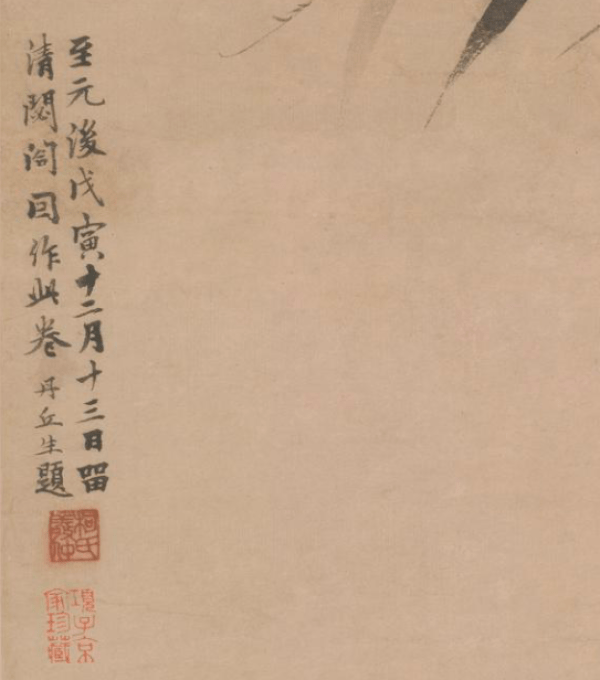 至元後戊寅十二月十三日留
清閟閣因作此卷丹丘生題
柯氏敬仲
項子京家珍藏